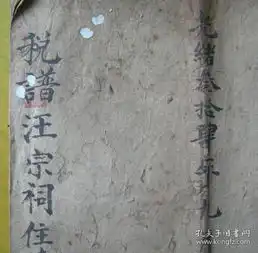 光緒叁拾肆年
税譜汪宗祠住
孔夫子旧书网
www.kongfz.com